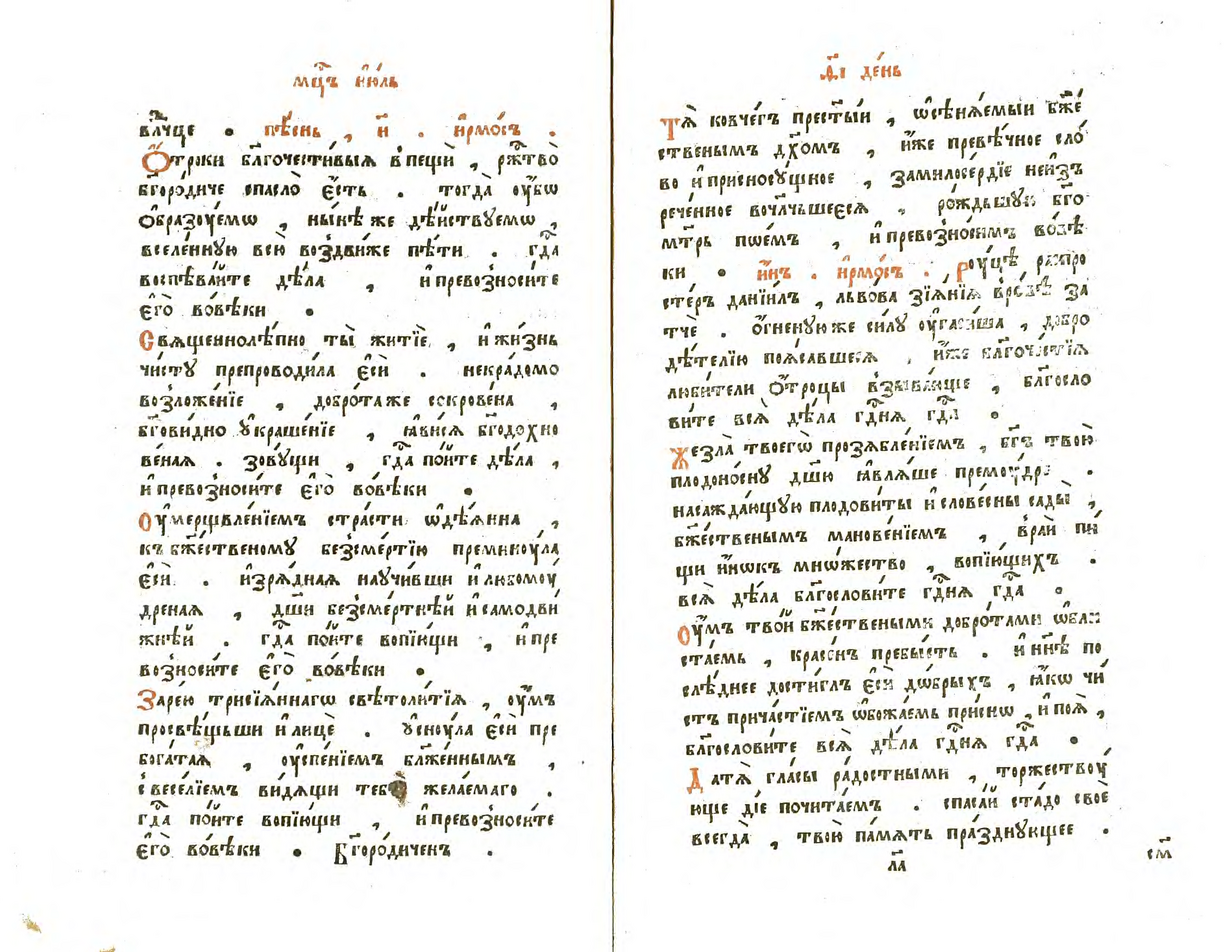 мц҃ъ і҆ю́ль
влⷣчце . пѣ́снь , и҃ . і҆рмо́съ .
Ѻ҆́троки бл҃гочести́выѧ впещѝ , рж҇тво̀
бг҃оро́диче спасло̀ є҆́сть . тогда̀ ᲂу҆́бѡ
ѻ҆бразꙋ́емѡ , ны́нѣ же дѣ́йствꙋемѡ ,
вселе́ннꙋю всю̀ воздви́же пѣ́ти . гдⷭ҇а
воспѣва́йте дѣла̀ , и҆ превозноси́те
є҆го̀ во́вѣки .
Свѧщеннолѣ́пно ты̀ житїѐ , и҆ жи́знь
чи́стꙋ препроводи́ла є҆сѝ . некра́домо
возложе́нїе , добро́таже сокрове́на ,
бг҃ови́дно ᲂу҆краше́нїе , ꙗ҆ви́сѧ бг҃одохно
ве́наѧ . зовꙋ́щи , гдⷭ҇а по́йте дѣла̀ ,
и҆ превозноси́те є҆го̀ во́вѣки .
Оу҆мерщвле́нїемъ стра́сти ѡ҆дѣ́ѧнна ,
къ бж҃е́ственомꙋ безсме́ртїю преминꙋ́ла
є҆сѝ . и҆зрѧ́днаѧ наꙋчи́вши и҆ любомоу
дренаѧ , дш҃и безсме́ртнѣй и҆ самодви
жнѣ́й . гдⷭ҇а по́йте вопїю́щи , и҆ пре
возноси́те є҆го̀ во́вѣки .
Заре́ю трисїѧ́ннагѡ свѣтоли́тїѧ , ᲂу҆́мъ
просвѣ́щьши и҆ лицѐ . ᲂу҆снꙋ́ла є҆сѝ пре
бога́таѧ , ᲂу҆спе́нїемъ бл҃же́ннымъ ,
с весе́лїемъ ви́дѧщи тебѐ жела́емаго .
гдⷭ҇а по́йте вопїю́щи , и҆ превозноси́те
є҆го̀ во́вѣки . Бг҃оро́диченъ .
а҃і де́нь
Тѧ̀ ковче́гъ прест҃ы́и , ѡ҆сѣнѧ́емыи бж҃е́
ственымъ дх҃омъ , и҆́же превѣ́чное сло́
во и҆ присносꙋ́щное , замилосе́рдїе неи҆з
рече́нное вочл҃чьшеесѧ , ро́ждьшꙋю бг҃о
мт҃рь пѡе́мъ , и҆ превозно́симъ во́вѣ
ки . и҆́нъ . і҆рмо́съ . Рꙋ́цѣ распро
сте́ръ данїи́лъ , льво́ва зїѧ́нїѧ вро́вѣ за
тчѐ . ѻ҆́гненꙋюже си́лꙋ ᲂу҆гаси́ша , добро
дѣ́телїю поѧ́савшесѧ , и҆́же бл҃гоче́стїѧ
люби́тели ѻ҆́троцы взыва́юще , бл҃госло
ви́те всѧ̀ дѣла̀ гдⷭ҇нѧ гдⷭ҇а .
Жезла̀ твоегѡ̀ прозѧбле́нїемъ , бг҃ъ твою̀
плодоно́снꙋ дш҃ю ꙗ҆влѧ́ше премоу́дре .
насажда́ющꙋю плодови́ты и҆ слове́сны сады̀ ,
бж҃е́ственымъ манове́нїемъ , вра́й пи́
щи и҆́нѡкъ мнѡ́жество , вопїю́щихъ .
всѧ̀ дѣла̀ бл҃гослови́те гдⷭ҇нѧ гдⷭ҇а .
Оу҆́мъ тво́й бж҃е́ствеными добро́тами ѡ҆бли
ста́емь , красе́нъ пребы́сть . и҆ нн҃ѣ по
слѣ́днее дости́глъ є҆сѝ дѡ́брыхъ , ꙗ҆́кѡ чи́
стъ прича́стїемъ ѡ҆божа́емь при́снѡ , и҆ поѧ̀ ,
бл҃гослови́те всѧ̀ дѣла̀ гдⷭ҇нѧ гдⷭ҇а .
Да тѧ̀ гла́сы ра́достными , торжествоу́
юще ді́е почита́емъ . спаса́й ста́до своѐ
всегда̀ , твою̀ па́мѧть пра́зднꙋющее .
л҃а
см҃